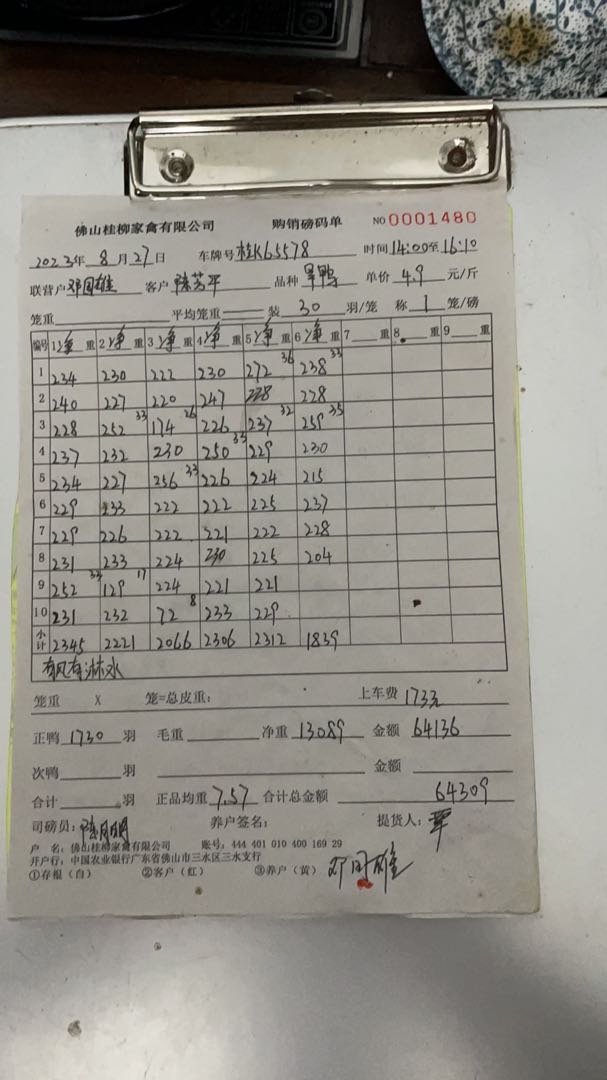 佛山桂柳家禽有限公司 购销磅码单 NO 0001480
2023年 8 月 27 日 车牌号 桂K65578 时间 14:00至16:10
联营户 邓国雄 客户 陈芳平 品种 旱鸭 单价 4.9 元/斤
笼重 平均笼重 装 30 羽/笼 称 1 笼/磅
编号 1净重 2净重 3净重 4净重 5净重 6净重 7 重 8 重 9 重
1 234 230 222 230 272 36 238 33
2 240 227 220 247 228 228
3 228 252 33 174 26 226 237 32 259 35
4 237 232 230 250 33 229 230
5 234 227 256 33 226 224 215
6 229 233 222 222 225 237
7 229 226 222 221 222 228
8 231 233 224 230 225 204
9 252 33 129 17 224 221 221
10 231 232 72 8 233 229
小计 2345 2221 2066 2306 2312 1839
有风有淋水
笼重 X 笼=总皮重: 上车费 173元
正鸭 1730 羽 毛重 净重 13089 金额 64136
次鸭 羽 金额
合计 羽 正品均重 7.57 合计总金额 64309
司磅员: 养户签名: 提货人:
户 名: 佛山桂柳家禽有限公司 账号: 444 401 010 400 169 29
开户行: 中国农业银行广东省佛山市三水区三水支行
①存根(白) ②客户(红) ③养户(黄) 邓国雄